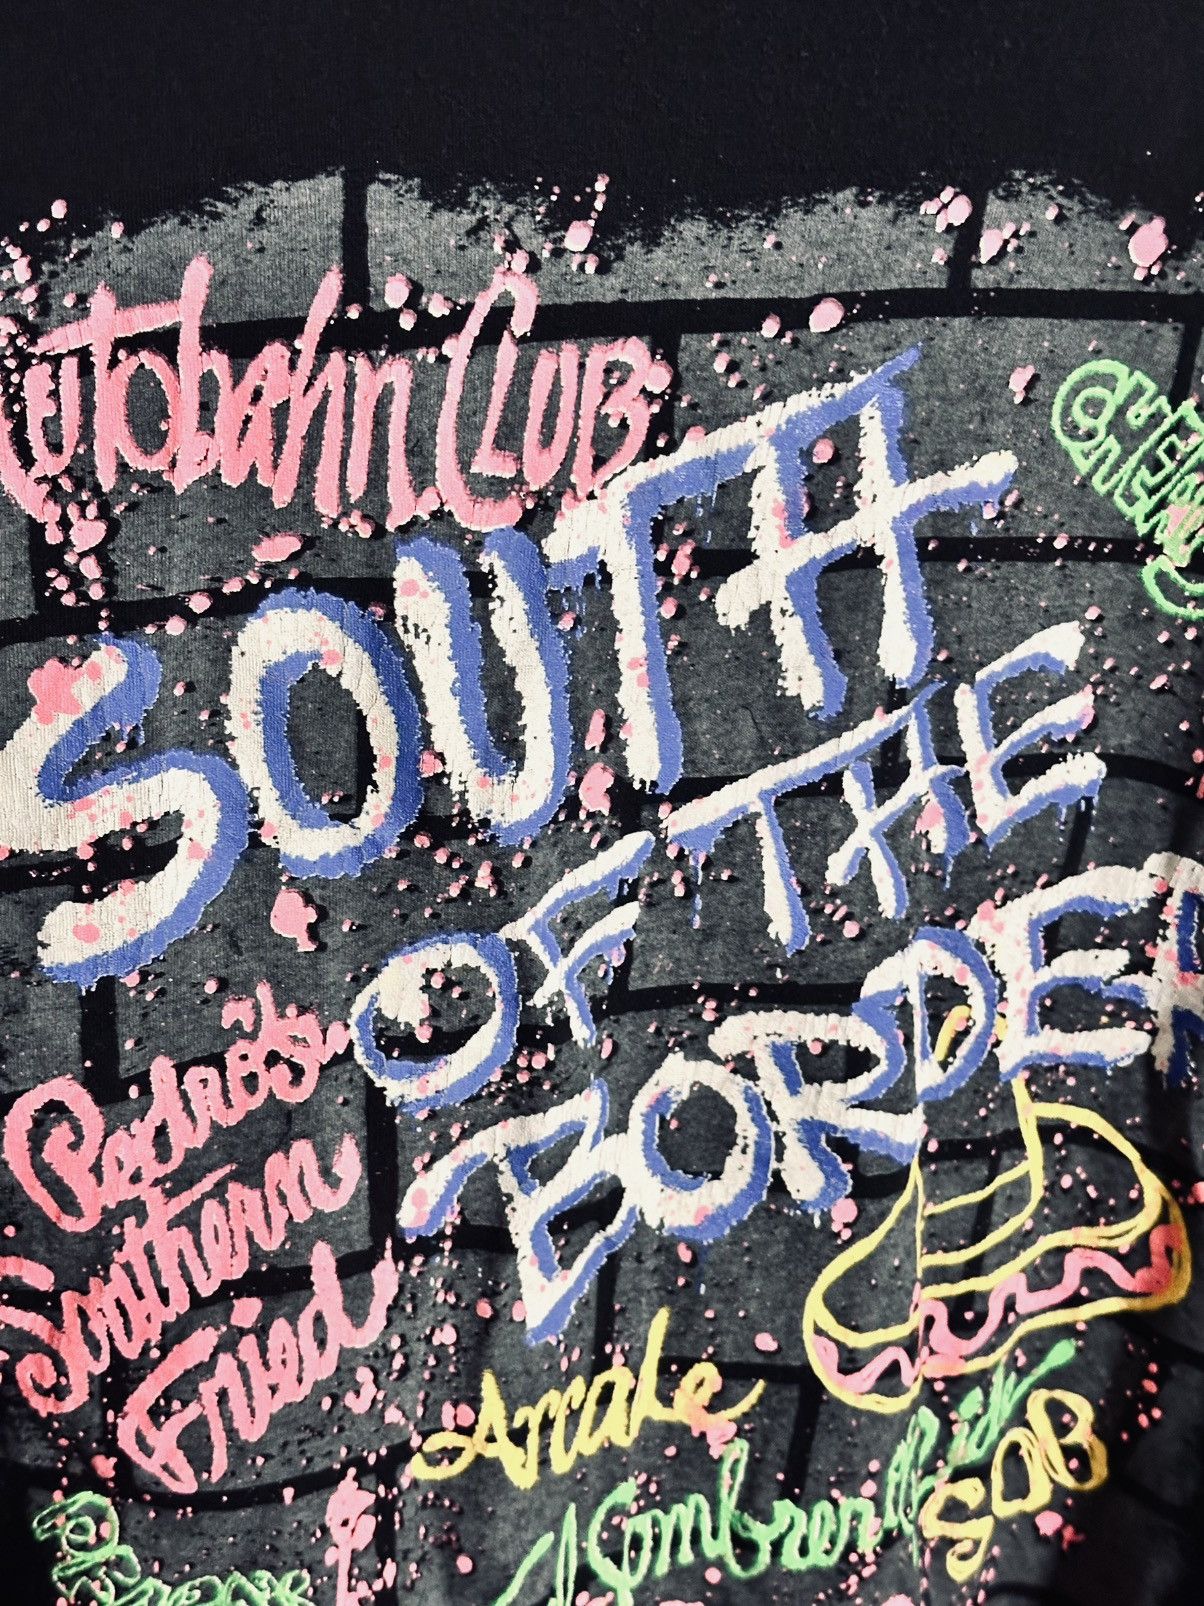 Autobahn Club
SOUTH
OF THE
BORDER
Pedro's
Southern
Fried
Arcade
SOB